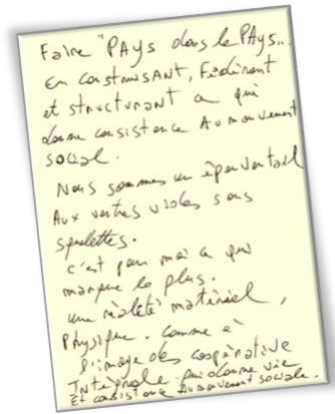 Faire "PAys dans le PAys..
En constrUisANT, Fédérant
et structurant ce qui
donne consistance Au mouvement
social.
Nous sommes un épouventail
Aux ventres vides sans
squelettes.
c'est pour moi ce qui
manque le plus.
une réalité matériel,
Physique. comme à
l'image des coopérative
INtégrale qui donne vie
Et consistance Au mouvement sociale.